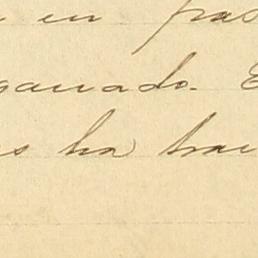 en pas
ganado. E
s ha trai